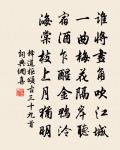 誰將畫角吹江城
一曲梅花隔岸聽
宿酒乍醒金鴨冷
海棠枝上月猶明
釋道樞頌古三十九首
詞典網